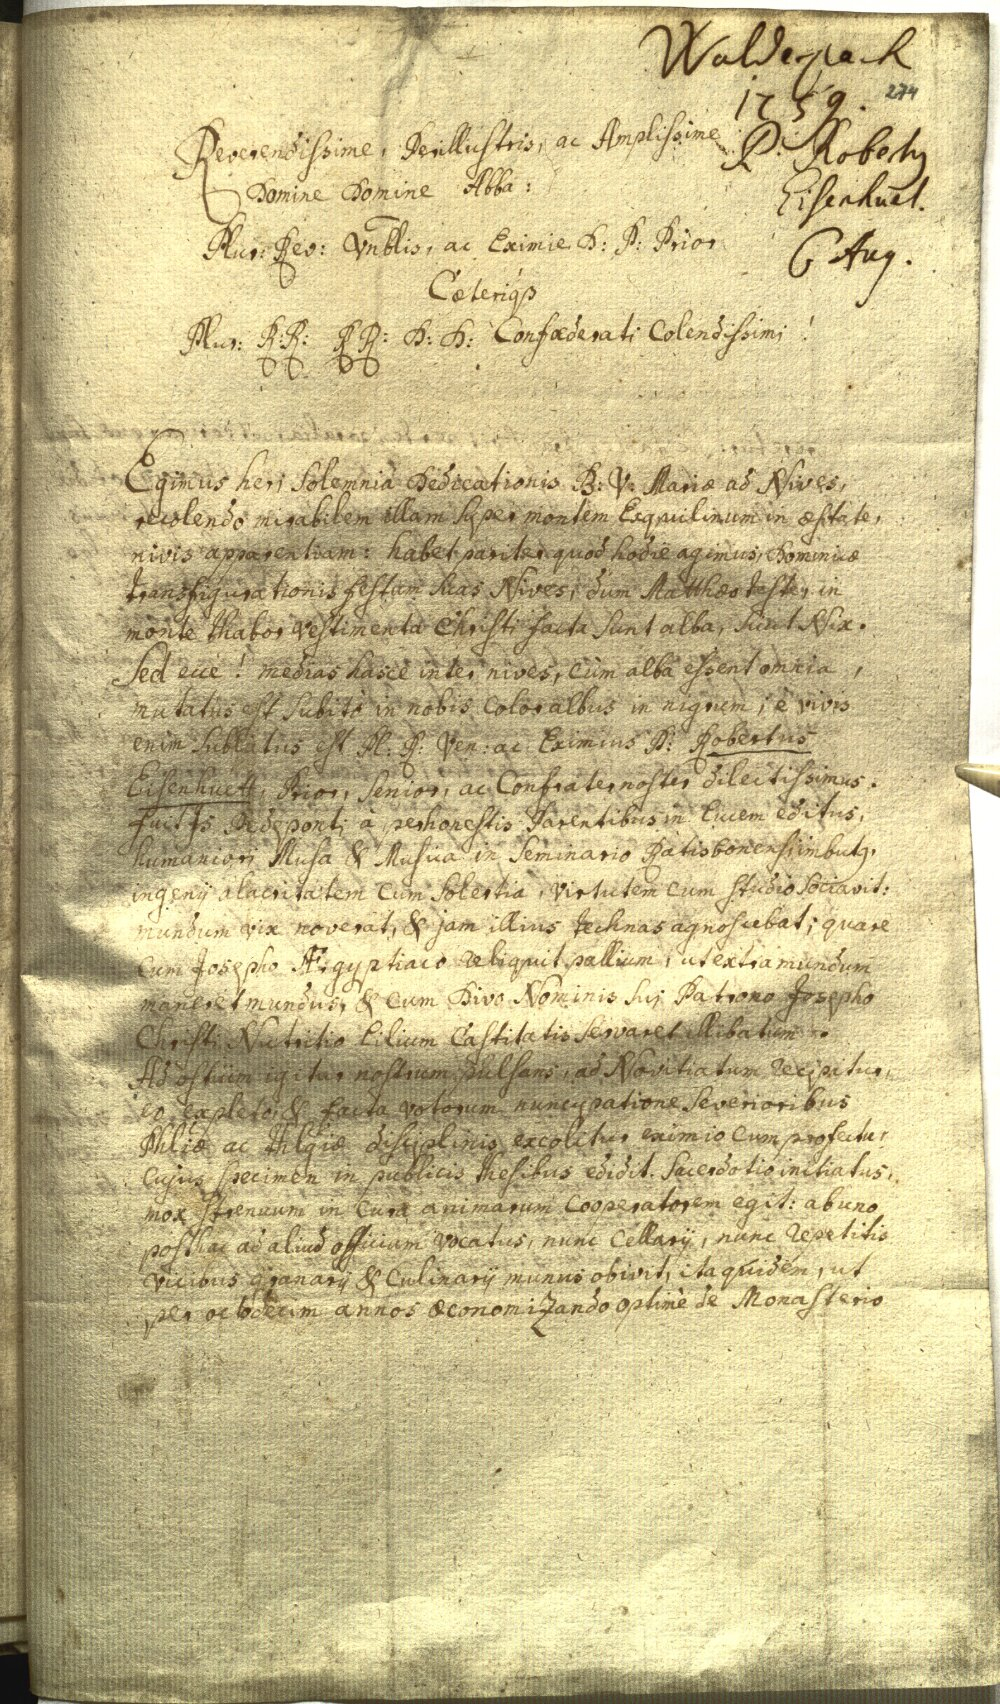 Walderpach
1759. 274
P. Robertq
Eisenhuet.
6 Aug.
Reverendissime, Perillustris, ac Amplissime
Domine Domine Abba:
Plur: Rev: Vnblis, ac Eximie D: P: Prior
Cæteriqs
Plur: R:R: PP: D: D: Confæderati Colendissimi!
Egimus heri Solemnia Dedicationis B: V: Mariæ ad Nives,
recolendo mirabilem illam super montem Esquilinum in æstate,
nivis apparentiam: habet pariter quod hodie agimus, Dominicæ
transfigurationis festum suas Nives, dum Matthæo teste, in
monte Thabor vestimenta Christi facta sunt alba, sicut Nix.
Sed ecce! medias hasce inter nives, cum alba essent omnia,
mutatus est subitò in nobis color albus in nigrum, è vivis
enim sublatus est Pl: R: Ven: ac Eximius P: Robertus
Eisenhuett, Prior, Senior, ac Confrater noster dilectissimus.
Fuit Is Pedeponti à perhonestis Parentibus in lucem editus,
humaniori Musa & Musica in Seminario Ratisbonensi imbutq,
ingenij alacritatem cum solertia, virtutem cum studio sociavit:
mundum vix noverat, & jam illius technas agnoscebat; quare
cum Josepho Ægyptiaco reliquit pallium, ut extra mundum
maneret mundus, & cum Divo Nominis sui Patrono Josepho
Christi Nutritio Lilium Castitatis servaret illibatum.
Ad ostium igitur nostrum pulsans, ad Novitiatum recipitur,
eo expleto, & facta votorum nuncupatione severioribus
Phliæ ac Thlgiæ disciplinis excolitur eximio cum profectu,
cujus specimen in publicis thesibus edidit. Sacerdotio initiatus,
mox strenuum in Cura animarum Cooperatorem egit: ab uno
posthac ad aliud officium vocatus, nunc Cellarij, nunc repetitis
vicibus granarij & Culinarij munus obivit, ita quidem, ut
per octodecim annos œconomizando optimè de Monasterio